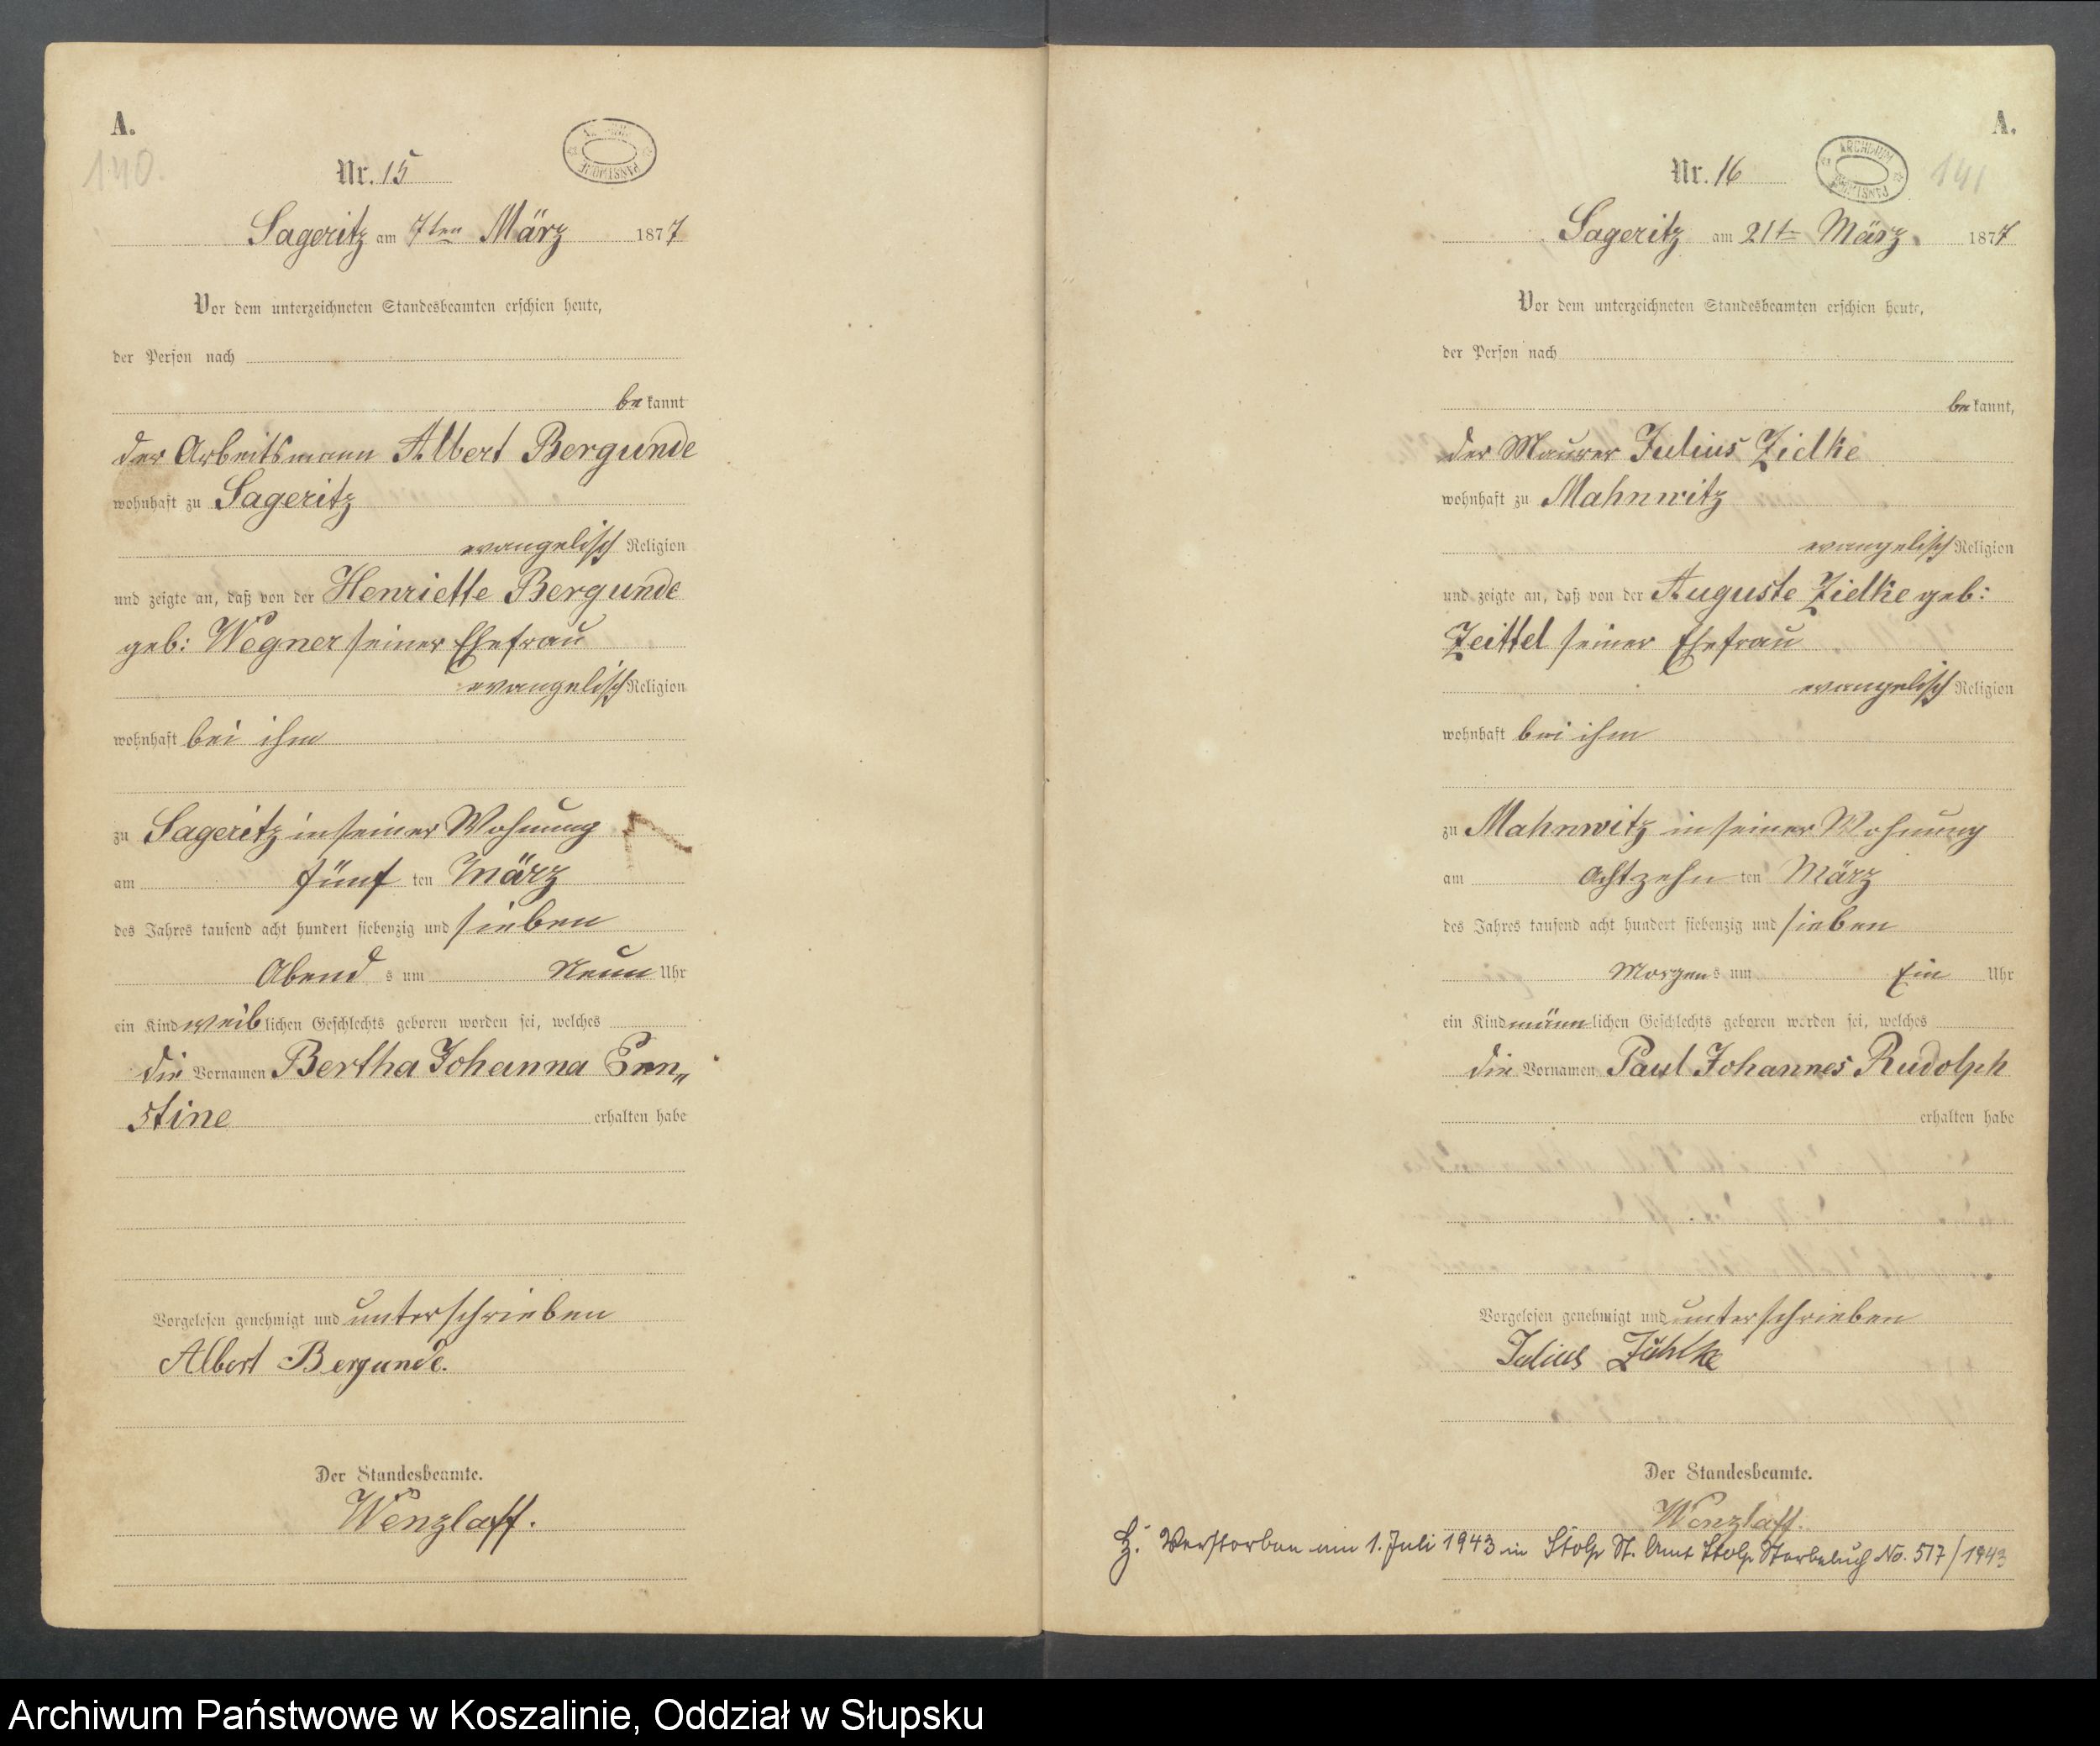 A.
140.
Nr. 15
Sageritz am 7ten März 1877
Vor dem unterzeichneten Standesbeamten erschien heute,
der Person nach
bekannt
der Arbeitsmann Albert Bergunde
wohnhaft zu Sageritz
evangelisch Religion
und zeigte an, daß von der Henriette Bergunde
geb: Wegner seiner Ehefrau
evangelisch Religion
wohnhaft bei ihm
zu Sageritz in seiner Wohnung
am fünf ten März
des Jahres tausend acht hundert siebenzig und sieben
Abend s um Neun Uhr
ein Kind weiblichen Geschlechts geboren worden sei, welches
die Vornamen Bertha Johanna Ern„
stine erhalten habe
Vorgelesen genehmigt und unterschrieben
Albert Bergunde.
Der Standesbeamte.
Wenzlaff.
A.
141
ARCHIWUM PAŃSTWOWE
Nr. 16
Sageritz am 21t März 1877
Vor dem unterzeichneten Standesbeamten erschien heute,
der Person nach
bekannt,
der Maurer Julius Zielke
wohnhaft zu Mahnwitz
evangelisch Religion
und zeigte an, daß von der Auguste Zielke geb:
Zeittel seiner Ehefrau
evangelisch Religion
wohnhaft bei ihm
zu Mahnwitz in seiner Wohnung
am achtzehn ten März
des Jahres tausend acht hundert siebenzig und sieben
Morgens um Ein Uhr
ein Kind männlichen Geschlechts geboren worden sei, welches
die Vornamen Paul Johannes Rudolph
erhalten habe
Vorgelesen genehmigt und unterschrieben
Julius Zühlke
Der Standesbeamte.
Wenzlaff.
Verstorben am 1. Juli 1943 in Stolp St. Amt Stolp Sterbebuch No. 517/1943
Archiwum Państwowe w Koszalinie, Oddział w Słupsku